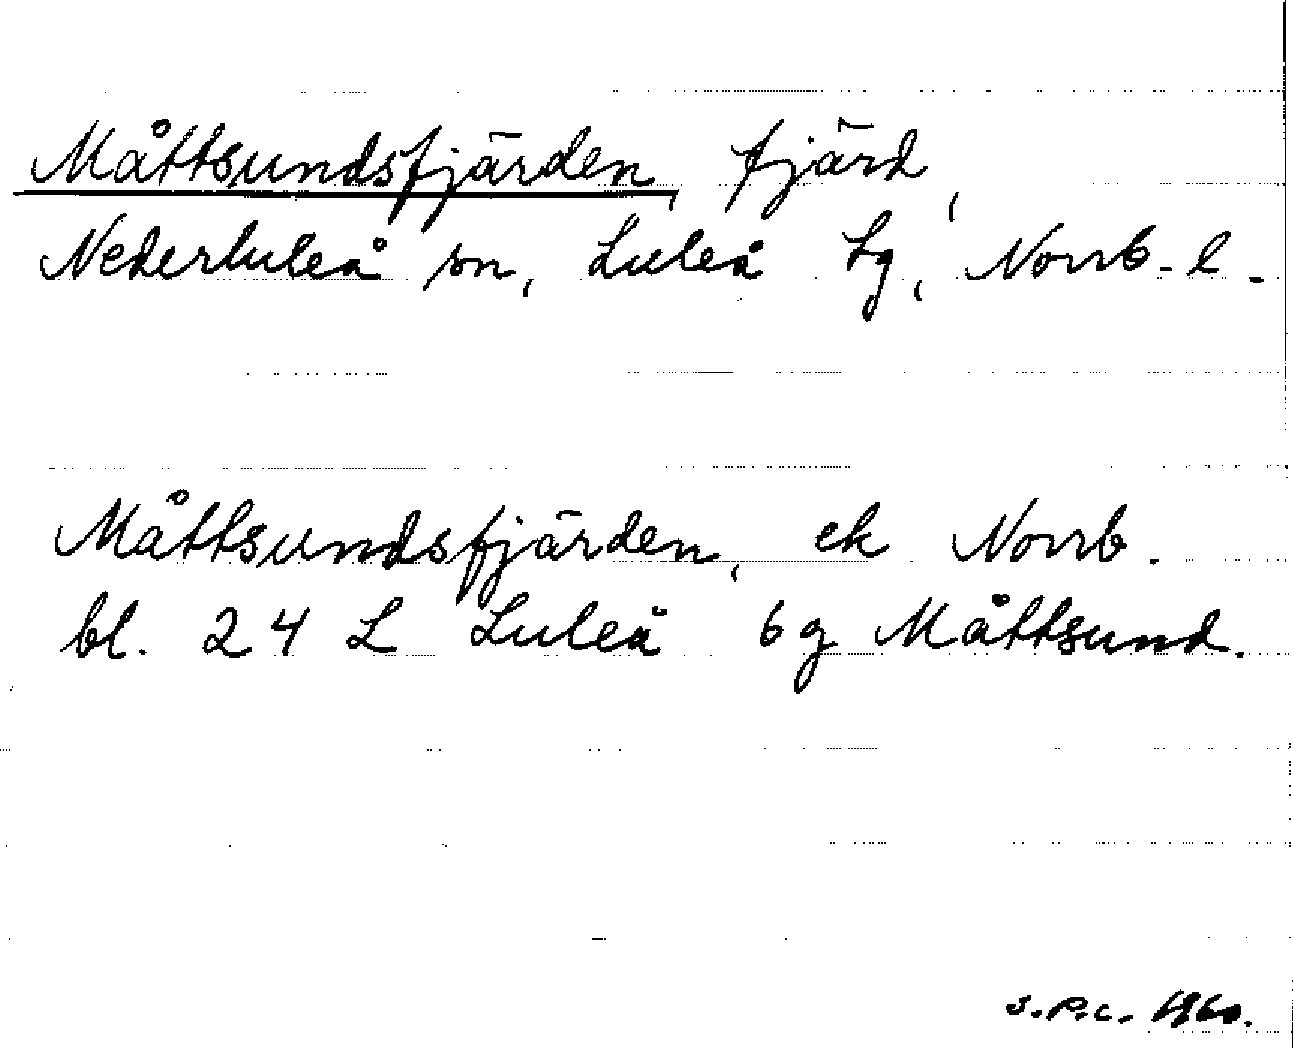 Måttsundsfjärden, fjärd,
Nederluleå sn, Luleå tg, Norrb. l.
Måttsundsfjärden, ek Norrb.
bl. 24 L Luleå 6g Måttsund.
S.P.C. 1960.